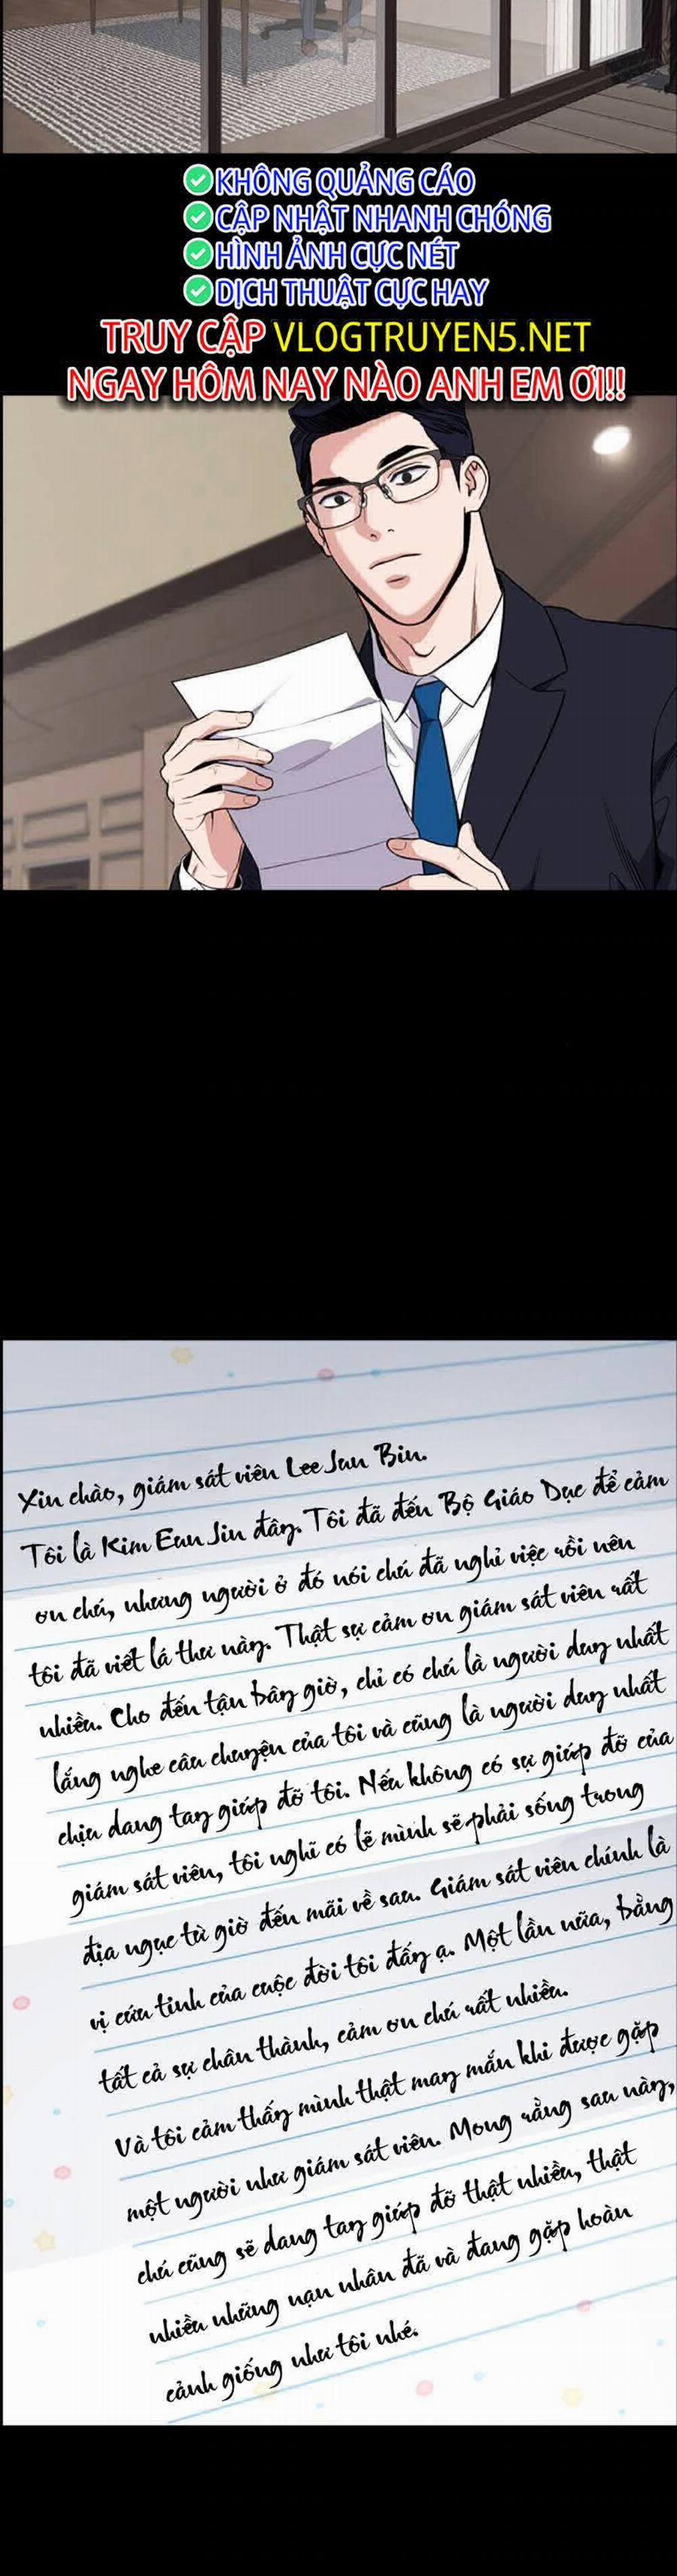 KHÔNG QUẢNG CÁO
CẬP NHẬT NHANH CHÓNG
HÌNH ẢNH CỰC NÉT
DỊCH THUẬT CỰC HAY
TRUY CẬP VLOGTRUYEN5.NET
NGAY HÔM NAY NÀO ANH EM ƠI!!
Xin chào, giám sát viên Lee Jun Bin.
Tôi là Kim Eun Jin đây. Tôi đã đến Bộ Giáo Dục để cảm
ơn chú, nhưng người ở đó nói chú đã nghỉ việc rồi nên
tôi đã viết lá thư này. Thật sự cảm ơn giám sát viên rất
nhiều. Cho đến tận bây giờ, chỉ có chú là người duy nhất
lắng nghe câu chuyện của tôi và cũng là người duy nhất
chịu dang tay giúp đỡ tôi. Nếu không có sự giúp đỡ của
giám sát viên, tôi nghĩ có lẽ mình sẽ phải sống trong
địa ngục từ giờ đến mãi về sau. Giám sát viên chính là
vị cứu tinh của cuộc đời tôi đấy ạ. Một lần nữa, bằng
tất cả sự chân thành, cảm ơn chú rất nhiều.
Và tôi cảm thấy mình thật may mắn khi được gặp
một người như giám sát viên. Mong rằng sau này,
chú cũng sẽ dang tay giúp đỡ thật nhiều, thật
nhiều những nạn nhân đã và đang gặp hoàn
cảnh giống như tôi nhé.